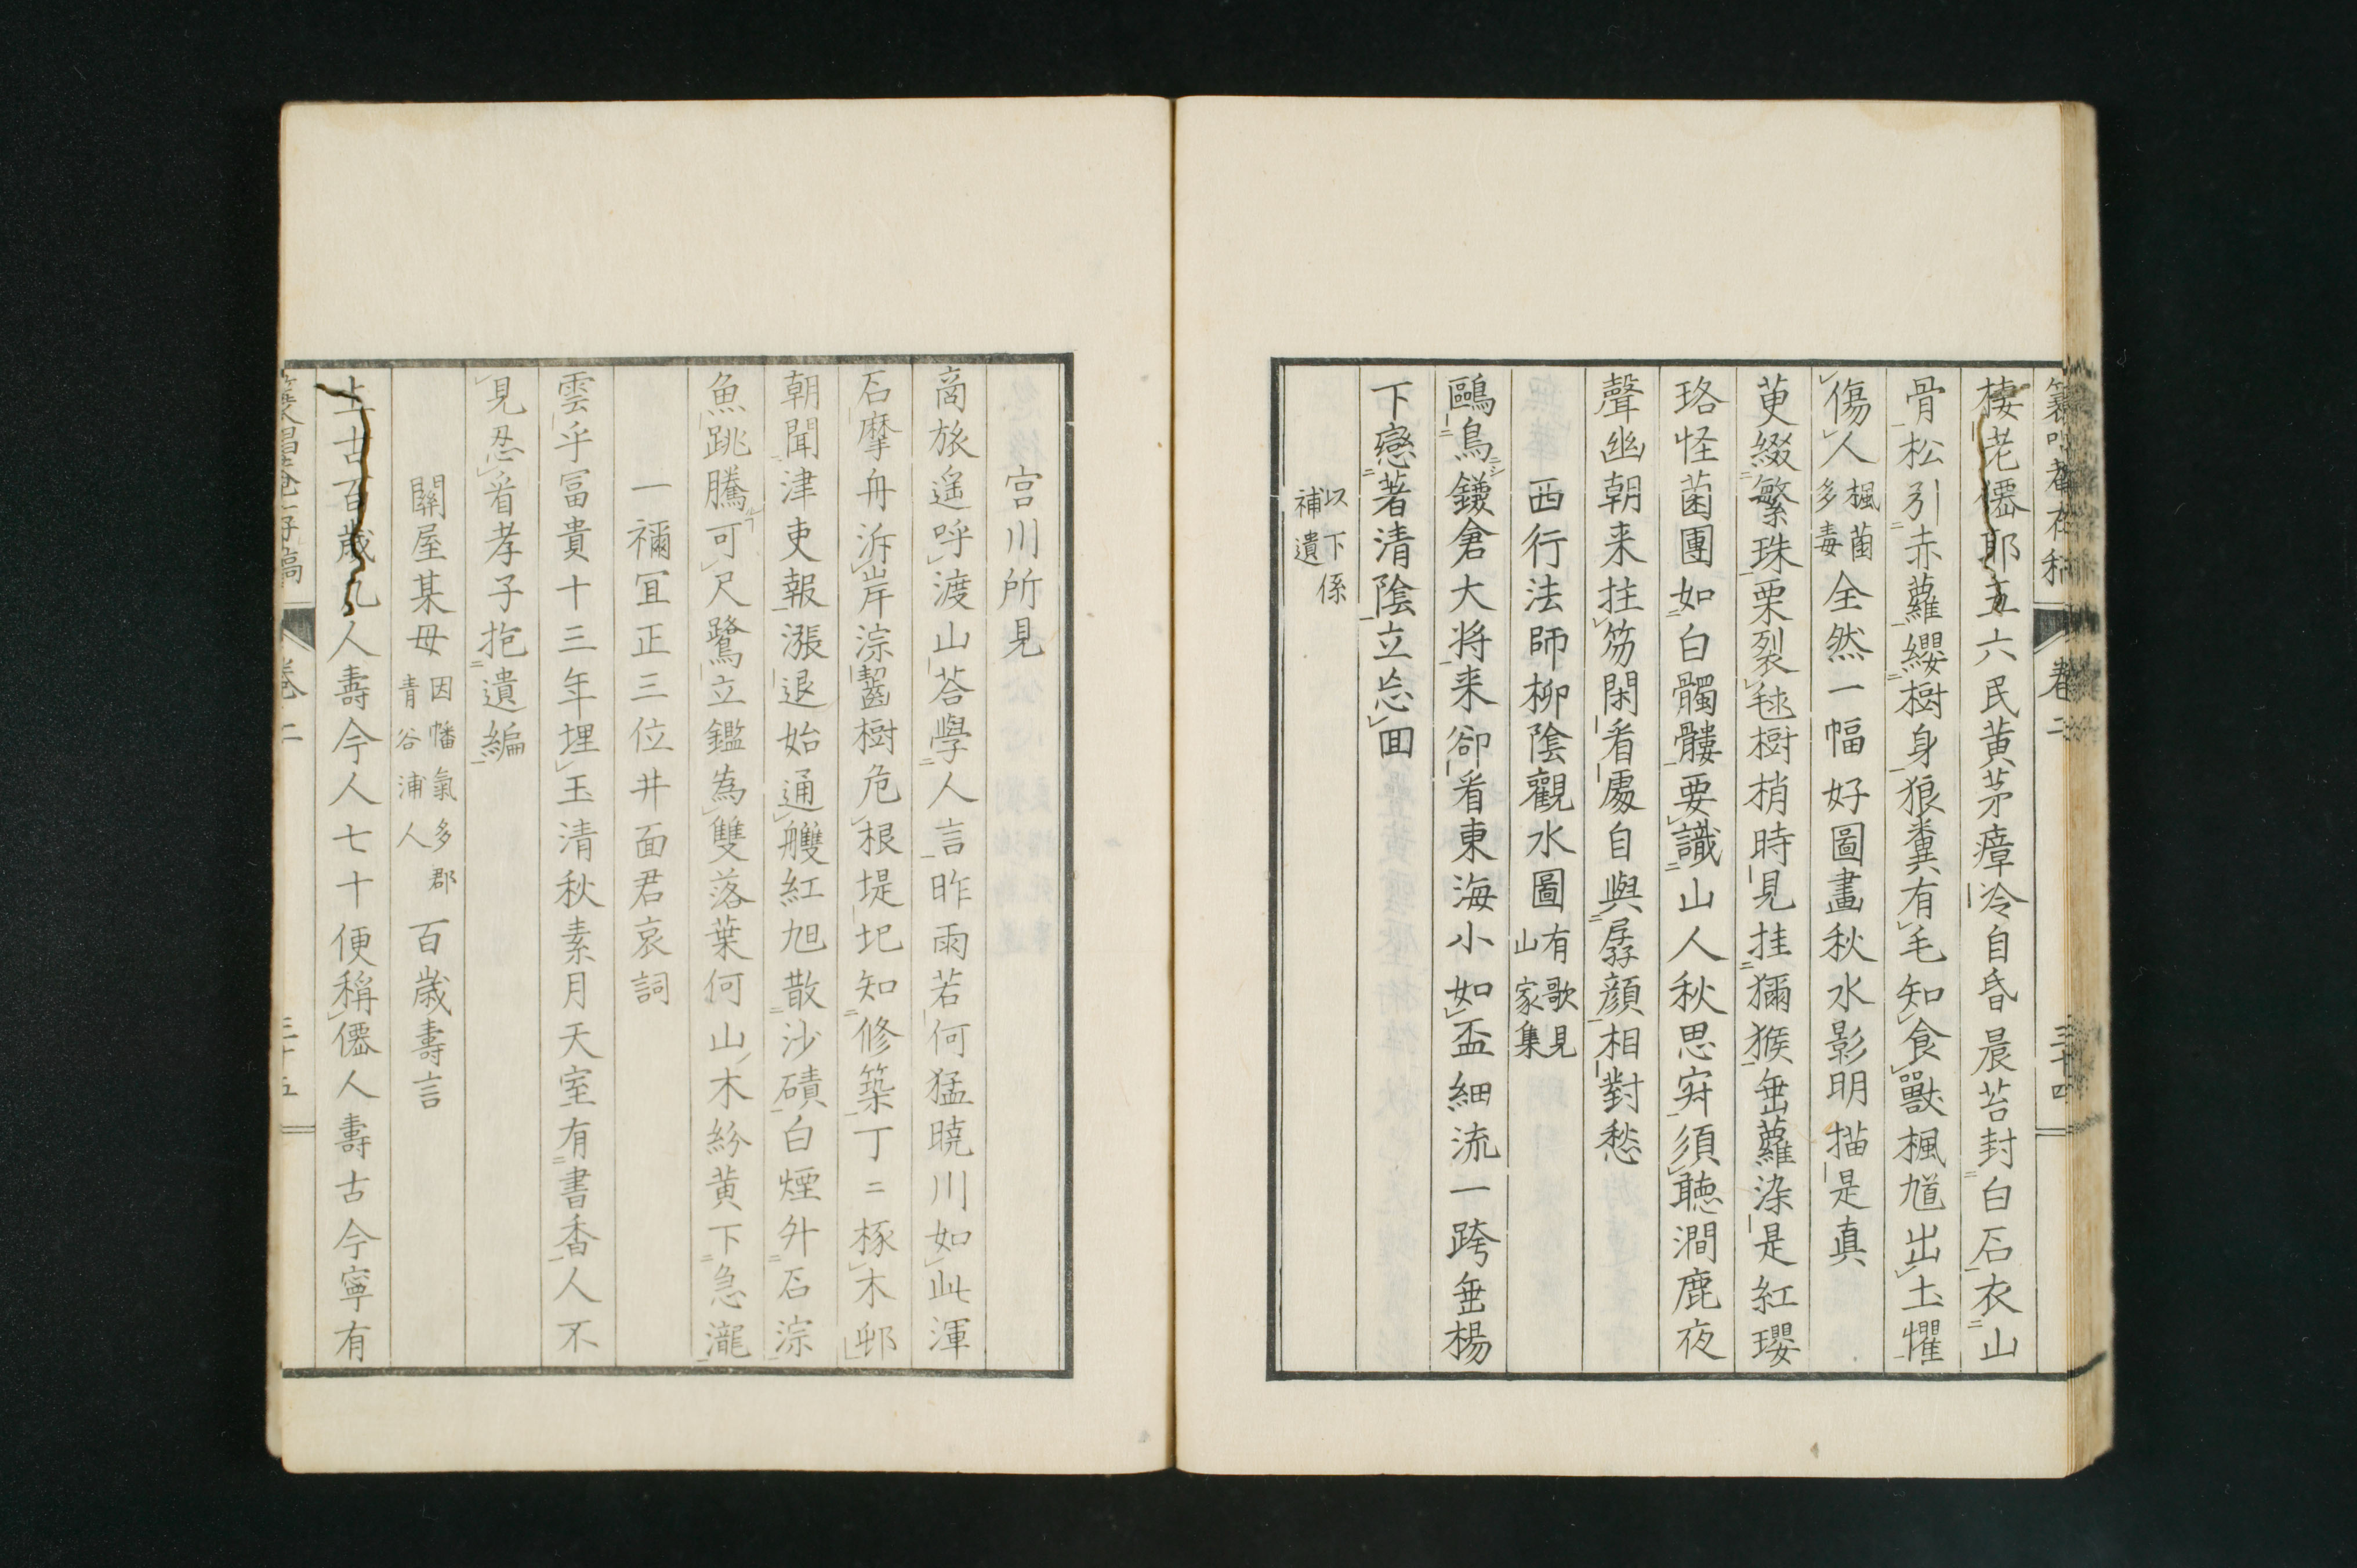 卷二
三十四
棲老僊耶五六民黄茅瘴冷自昏晨苔封白石衣山
骨松引赤蘿纓樹身狼糞有毛知食獸楓馗出土懼
傷人楓菌多毒全然一幅好圖畫秋水影明描是真
茰綴繁珠栗裂毬樹梢時見挂獼猴垂蘿染是紅瓔
珞怪菌團如白髑髏要識山人秋思穽須聴澗鹿夜
聲幽朝来拄笏閑看處自與孱顔相對愁
西行法師柳陰觀水圖有歌見山家集
鷗鳥鎌倉大将来卻看東海小如盃細流一跨垂楊
下戀著清陰立忘囬
以下係補遺
宮川所見
商旅遥呼渡山荅學人言昨雨若何猛曉川如此渾
石摩舟泝岸淙齧樹危根堤圯知修築丁〻椓木邨
朝聞津吏報漲退始通艭紅旭散沙磧白煙外石淙
魚跳騰可尺鷺立鑑為雙落葉何山木紛黄下急瀧
一禰冝正三位井面君哀詞
雲乎冨貴十三年埋玉清秋素月天室有書香人不
見忍看孝子抱遺編
關屋某母因幡氣多郡青谷浦人百歳壽言
上古百歳凡人壽今人七十便稱僊人壽古今寧有
卷二
三十五